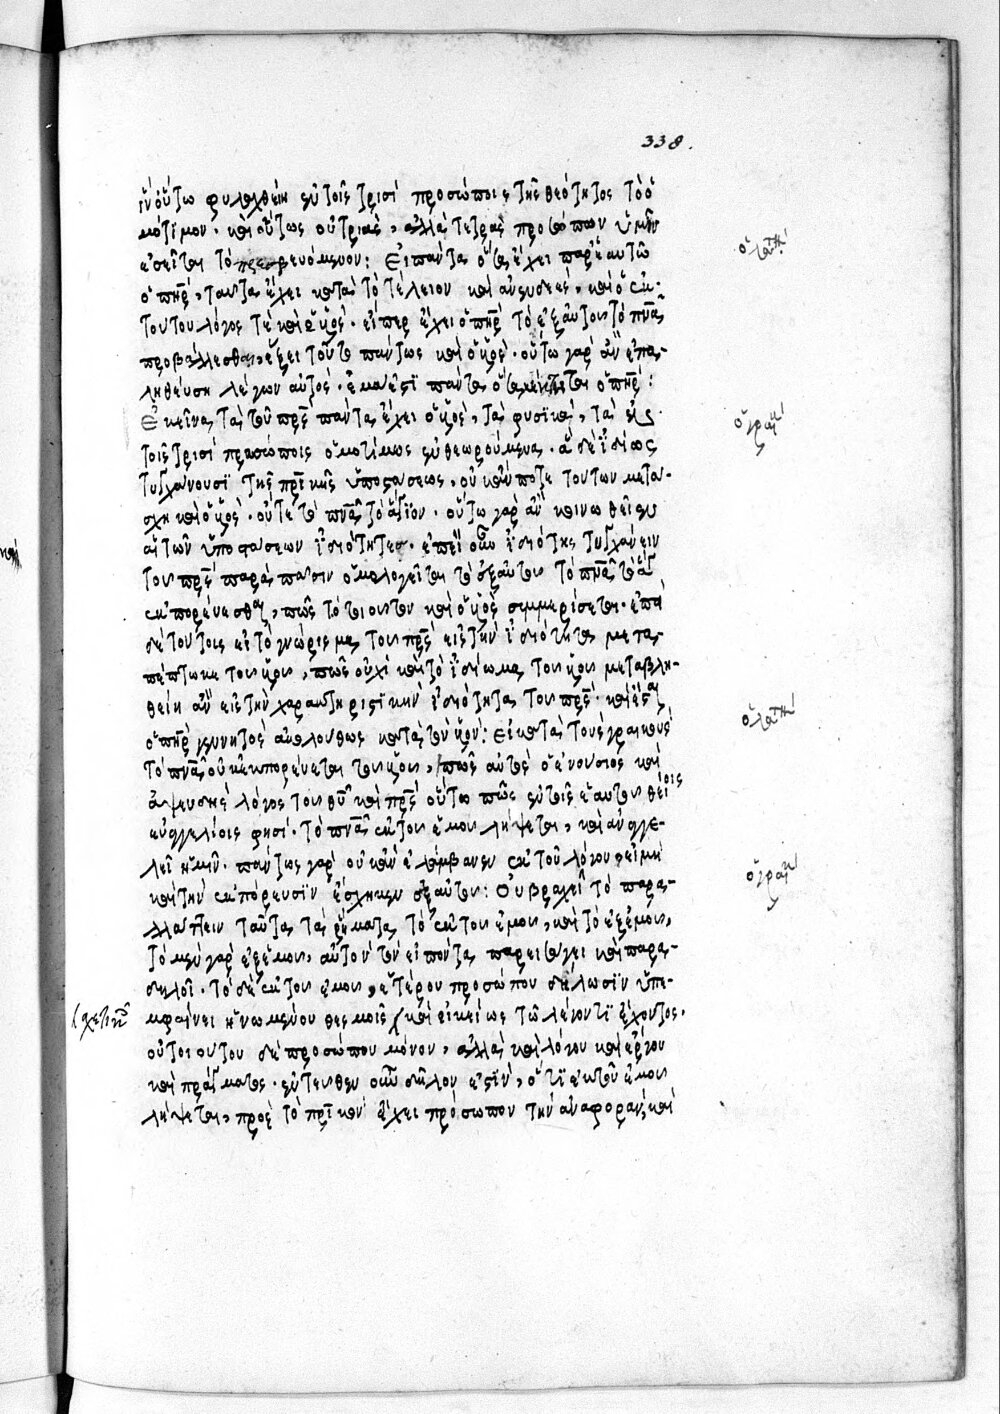 338.
ἵν' οὕτω φυλαχθείη ἐν τοῖς τρισὶ προσώποις τῆς θεότητος τὸ ὁ
μότιμον· καὶ οὕτως οὐ τριὰς, ἀλλὰ τετρὰς προσώπων ὑμῖν
εἰσεῖται τὸ πρεσβευόμενον: Εἰ πάντα ὅσα ἔχει παρ' ἑαυτῶ
ὁ πηρ, ταῦτα ἔχει κατὰ τὸ τέλειον καὶ ἀνενδεὲς, καὶ ὁ ἐκ
τούτου λόγος τὲ καὶ ὑς· εἴπερ ἔχει ὁ πηρ τὸ ἐξ αὐτοῦ τὸ πνα
προβάλλεσθαι, ἕξει τοῦτο πάντως καὶ ὁ ὑς· οὕτω γὰρ ἂν ἐπα-
ληθεύση λέγων αὐτὸς· ἐμά ἐστι πάντα ὅσα κέκτηται ὁ πηρ:
Ἐκεῖνα τὰ τοῦ πρς πάντα ἔχει ὁ ὑς, τὰ φυσικὰ, τὰ ἐν
τοῖς τρισὶ προσώποις ὁμοτίμως ἐνθεωρούμενα· ἃ δὲ ἰδίως
τυγχάνουσι τῆς πρικῆς ὑποστάσεως, οὐκ ἄν ποτε τούτων μετά-
σχη καὶ ὁ ὑς· οὔτε τὸ πνα τὸ ἅγιον· οὕτω γὰρ ἂν κοινωθεῖεν
αἱ τῶν ὑποστάσεων ἰδιότητες· ἐπεὶ οὖν ἰδιότης τυγχάνειν
τοῦ πρς παρὰ πᾶσιν ὁμολογεῖται τὸ ἐξ αὐτοῦ τὸ πνα τὸ ἅγ
ἐκπορεύεσθαι, πῶς τὸ τοιοῦτον καὶ ὁ ὑς συμμερίσεται· ἔπει
δὲ τούτοις εἰ τὸ γνώρισμα τοῦ πρς εἰς τὴν ἰδιότητα μετα-
πέπτωκε τοῦ ὑοῦ, πῶς οὐχὶ καὶ τὸ ἰδίωμα τοῦ ὑοῦ μεταβλη-
θείη ἂν εἰς τὴν χαρακτηριστικὴν ἰδιότητα τοῦ πρς· καὶ ἔσται
ὁ πηρ γεννητὸς ἀκολούθως κατὰ τὸν ὑόν: Εἰ κατὰ τοὺς γραικοὺς
τὸ πνα οὐκ ἐκπορεύεται τοῦ ὑοῦ, πῶς αὐτὸς ὁ ἐνούσιος καὶ
ἀψευδὴς λόγος τοῦ θυ καὶ πρς οὕτω πῶς ἐν τοῖς ἑαυτοῦ θείοις
εὐαγγελίοις φησί· τὸ πνα ἐκ τοῦ ἐμοῦ λήψεται, καὶ ἀναγγε-
λεῖ ὑμῖν· πάντως γὰρ οὐκ ἂν ἐλάμβανεν ἐκ τοῦ λόγου εἰ μὴ
καὶ τὴν ἐκπόρευσιν ἔσχηκεν ἐξ αὐτοῦ: Οὐ βραχεῖ τὸ παρα-
λλάττειν ταῦτα τὰ ῥήματα τὸ ἐκ τοῦ ἐμοῦ, καὶ τὸ ἐξ ἐμοῦ,
τὸ μὲν γὰρ ἐξ ἐμοῦ, αὐτὸν τὸν εἰπόντα παρεισάγει καὶ παρα-
δηλοῖ· τὸ δὲ ἐκ τοῦ ἐμοῦ, ἑτέρου προσώπου δήλωσιν ὑπε-
μφαίνει ἡνωμένου θεσμοῖς καὶ οἰκείως τῶ λέγοντι ἔχοντος·
οὔτοι οὕτου δὲ προσώπου μόνον, ἀλλὰ καὶ λόγου καὶ ἔργου
καὶ πράγματος· ἐντεῦθεν οὖν δῆλον ἐστὶν, ὅτι ἐκ τοῦ ἐμοῦ
λήψεται, πρὸς τὸ πρικὸν ἔχει πρόσωπον τὴν ἀναφορὰν, καὶ
ὁ λατῖ
ὁ γραικ
ὁ λατῖ
ὁ γραικ
σχετικοῖ